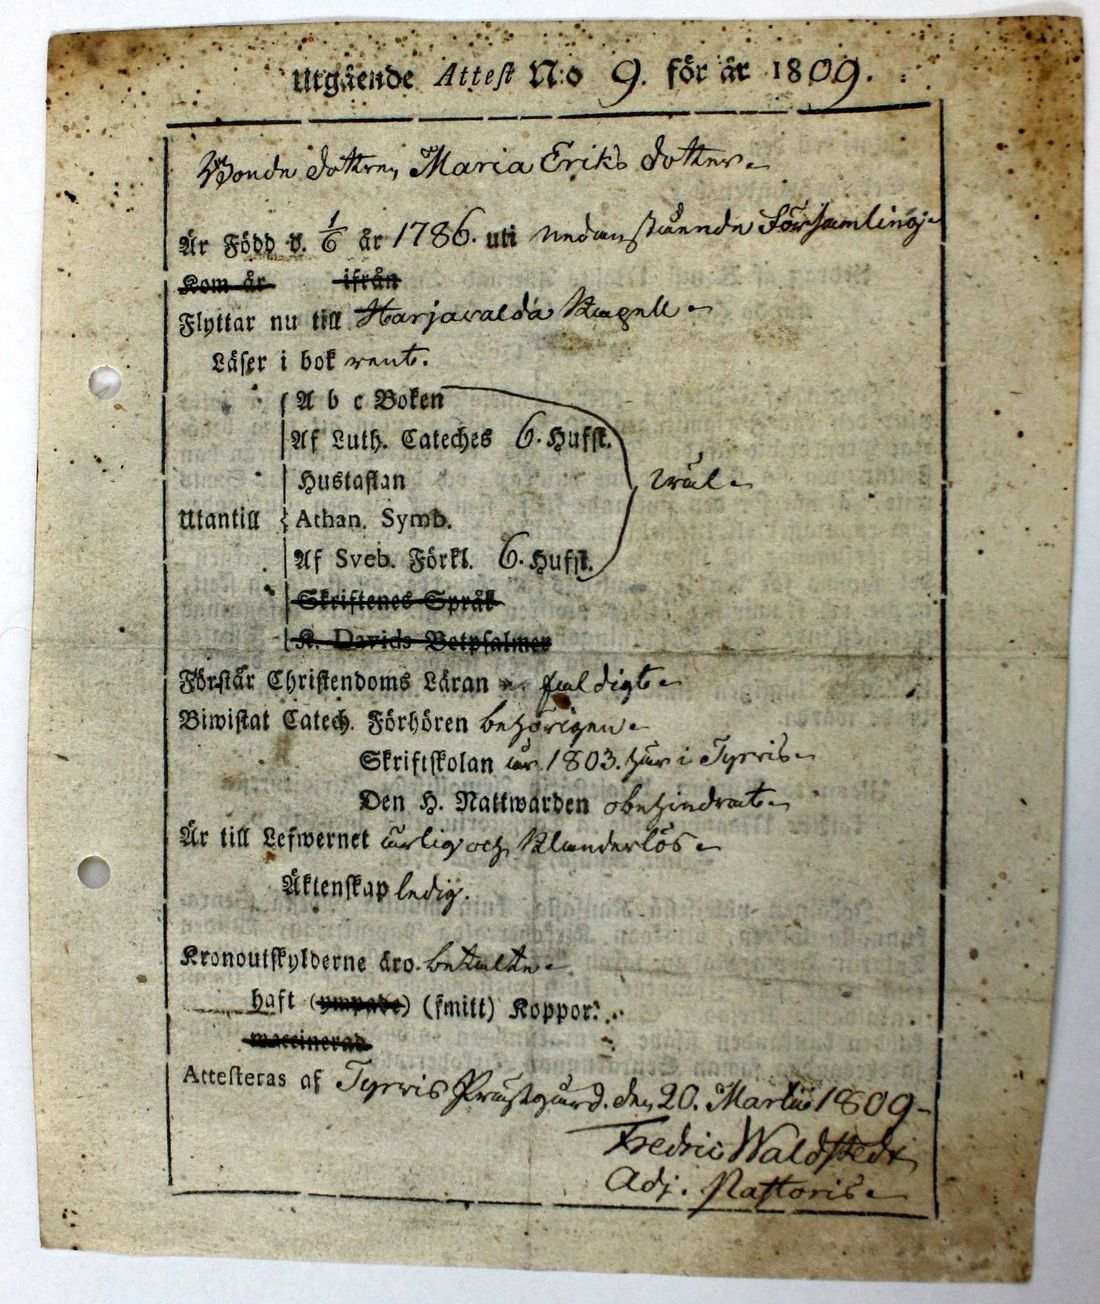 Utgående Attest N:o 9. för år 1809.
Bonde dottren Maria Eriks dotter
Är Född d. 1/6 år 1786. uti nedanstående Församling
Kom år ifrån
Flyttar nu till Harjavalda Kapell
Läser i bok rent.
A b c Boken
Af Luth. Cateches 6. Hufst.
Hustaflan
wäl
Utantill
Athan. Symb.
Af Sveb. Förkl. 6. Hufst.
Skriftenes Språk
K. Davids Botpsalmer
Förstår Christendoms Läran
Biwistat Catech. Förhören behörigen
Skriftskolan år 1803. här i Tyrvis
Den H. Nattwarden obehindrat
Är till Lefwernet ärlig och klanderlös
Äktenskap ledig.
Kronoutskylderne äro betalte
haft (ympade) (smitt) Koppor.
vaccinerad
Attesteras af Tyrvis Prästgård. den 20. Martii 1809
Fredric Waldstedt
Adj. Pastoris